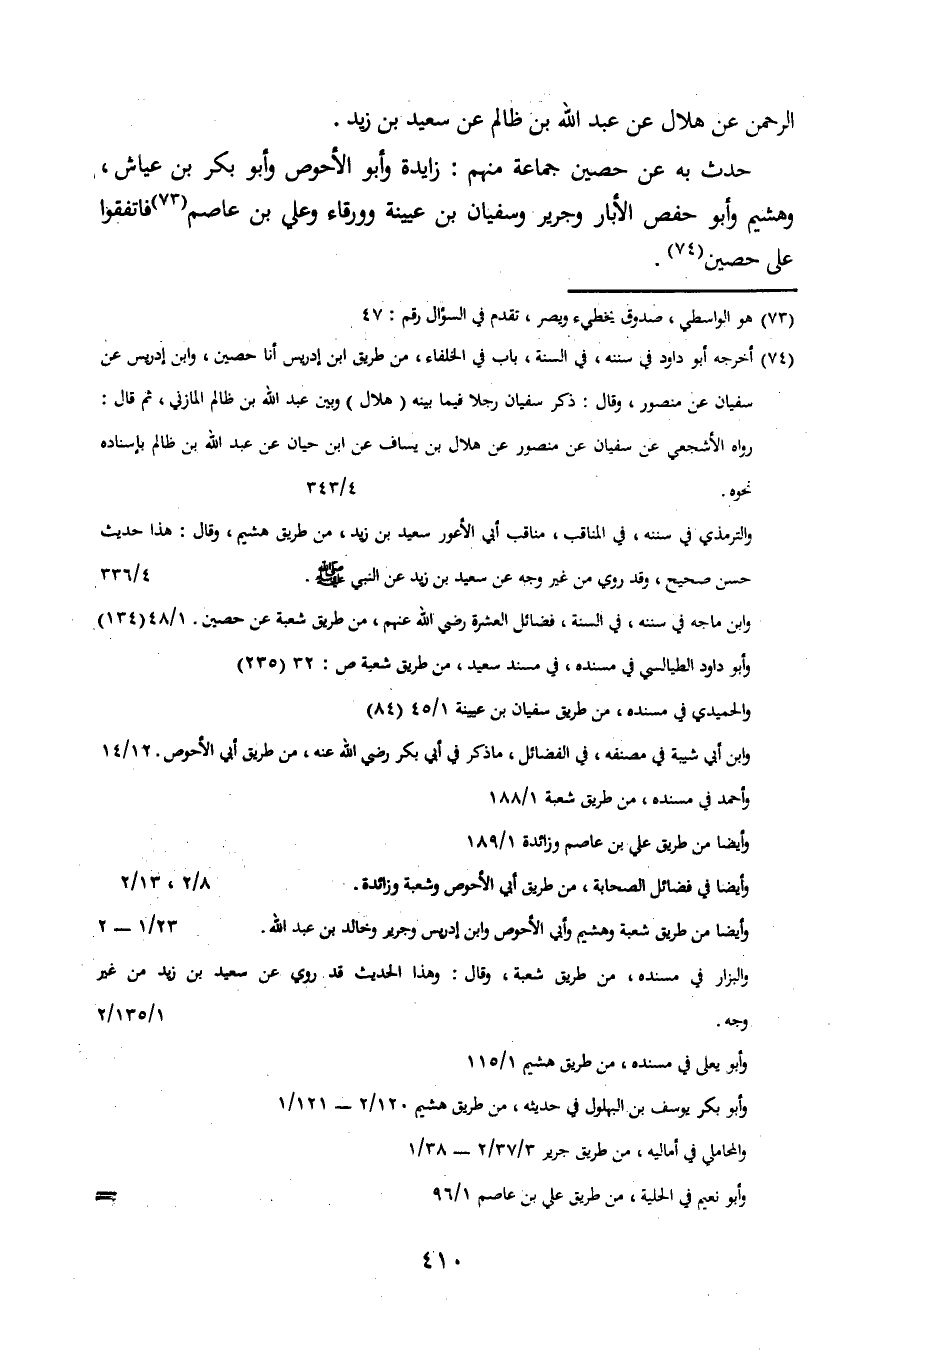 الرحمن عن هلال عن عبد الله بن ظالم عن سعيد بن زيد .
حدث به عن حصين جماعة منهم : زايدة وأبو الأحوص وأبو بكر بن عياش ،
وهشيم وأبو حفص الأبار وجرير وسفيان بن عيينة وورقاء وعلي بن عاصم(٧٣)فاتفقوا
على حصين(٧٤) .
(٧٣) هو الواسطي ، صدوق يخطيء ويصر ، تقدم في السؤال رقم : ٤٧
(٧٤) أخرجه أبو داود في سننه ، في السنة ، باب في الخلفاء ، من طريق ابن إدريس أنا حصين ، وابن إدريس عن
سفيان عن منصور ، وقال : ذكر سفيان رجلا فيما بينه ( هلال ) وبين عبد الله بن ظالم المازني ، ثم قال :
رواه الأشجعي عن سفيان عن منصور عن هلال بن يساف عن ابن حيان عن عبد الله بن ظالم بإسناده
نحوه . ٣٤٣/٤
والترمذي في سننه ، في المناقب ، مناقب أبي الأعور سعيد بن زيد ، من طريق هشيم ، وقال : هذا حديث
حسن صحيح ، وقد روي من غير وجه عن سعيد بن زيد عن النبي ﷺ . ٣٣٦/٤
وابن ماجه في سننه ، في السنة ، فضائل العشرة رضي الله عنهم ، من طريق شعبة عن حصين . ٤٨/١(١٣٤)
وأبو داود الطيالسي في مسنده ، في مسند سعيد ، من طريق شعبة ص : ٣٢ (٢٣٥)
والحميدي في مسنده ، من طريق سفيان بن عيينة ٤٥/١ (٨٤)
وابن أبي شيبة في مصنفه ، في الفضائل ، ماذكر في أبي بكر رضي الله عنه ، من طريق أبي الأحوص . ١٤/١٢
وأحمد في مسنده ، من طريق شعبة ١٨٨/١
وأيضا من طريق علي بن عاصم وزائدة ١٨٩/١
وأيضا في فضائل الصحابة ، من طريق أبي الأحوص وشعبة وزائدة . ٢/٨ ، ٢/١٣
وأيضا من طريق شعبة وهشيم وأبي الأحوص وابن إدريس وجرير وخالد بن عبد الله . ١/٢٣ — ٢
والبزار في مسنده ، من طريق شعبة ، وقال : وهذا الحديث قد روي عن سعيد بن زيد من غير
وجه . ٢/١٣٥/١
وأبو يعلى في مسنده ، من طريق هشيم ١١٥/١
وأبو بكر يوسف بن البهلول في حديثه ، من طريق هشيم ٢/١٢٠ — ١/١٢١
والمحاملي في أماليه ، من طريق جرير ٢/٣٧/٣ — ١/٣٨
وأبو نعيم في الحلية ، من طريق علي بن عاصم ٩٦/١ =
٤١٠